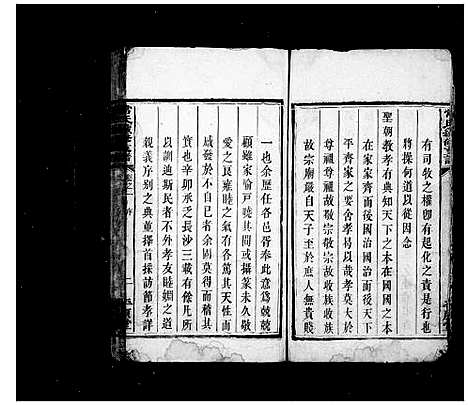 有司牧之權卽有起化之責是行也
將操何道以從因念
聖朝教孝有典知天下之本在國國之本
在家家齊而後國治國治而後天下
平齊家之要舍孝易以哉孝莫大於
尊祖尊祖故敬宗敬宗故收族收族
故宗廟嚴自天子至於庶人無貴賤
一也余歷任各邑胥奉此意爲兢兢
顧雖家喻戸聽其間或攝篆未久敬
愛之良雍睦之氣有各篤其天性而
感發於不自已者余固莫得而稽其
跡也辛卯承乏長沙三載有餘凡所
以訓迪斯民者不外孝友睦婣之道
親義序别之典並擇首採訪節孝詳